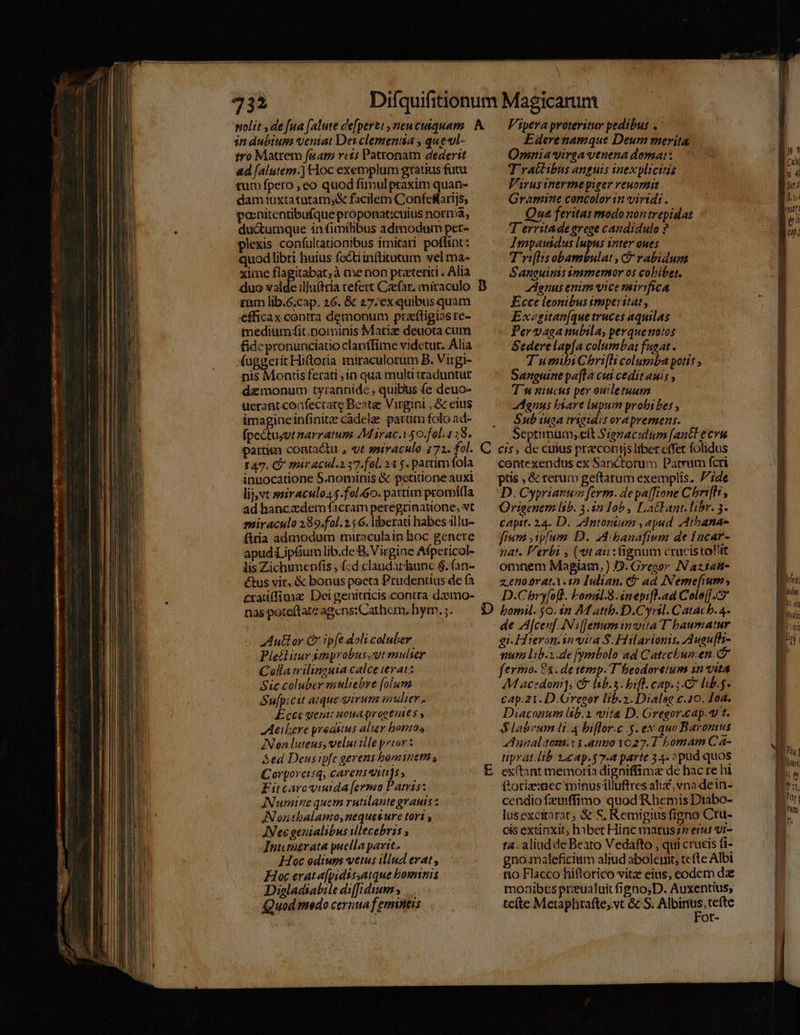 732 Disquisitionum Magicarum
nolit, de sua salute desperet, neu cuiquam A
in dubium veniat Dei clementia, que vl-
tro Matrem suam reis Patronam dederit
ad salutem.] Hoc exemplum gratius futu
rum spero, eo quod simul praxim quan-
dam iuxta tutam, & facilem Confessarijs,
pœnitentibusque proponat: cuius norma,
ductumque in similibus admodum per-
plexis consultationibus imitari possint:
quod libri huius scoti institutum vel ma-
xime flagitabat, à me non præteriri. Alia
duo valde illustria refert Cæsar. miraculo B
rum lib.6.cap. 26. & 27. ex quibus quam
efficax contra demonum præstigias re-
medium sit nominis Mariæ deuota cum
fide pronunciatio clarissime videtur. Alia
suggerit Historia miraculorum B. Virgi-
nis Montis ferati, in qua multi traduntur
dæmonum tyrannide, quibus se deuo-
uerant confecrate Beatæ Virgini, & eius
imagine infinitæ cadelæ patum folo ad-
spectu, vt narratum Mirac.150.fol.138.
partim contactu, vt miraculo 172. fol. C
147. & miracul.237.fol. 215. partim sola
inuocatione S. nominis & petitione auxi
lij, vt miraculo 45. fol.60. partim promissa
ad hanc ædem sacram peregrinatione, vt
miraculo 289. fol. 256. liberati habes illu-
stria admodum miraculain hoc genere
apud Lipsium lib. de B. Virgine Aspericol-
lis Zichimensis; sed claudat hunc §. san-
ctus vir, & bonus poeta Prudentius de sa
cratissimæ Dei genitricis contra dæmo-
nas potestate agens: Cathem. hym. 3.
Auctor & ipse doli coluber
Plectitur improbus, vt mulier
Colla trilinguia calce terat:
Sic coluber muliebre solum
Suspicit atque virum mulier.
Ecce venit noua progenies,
Aethere proditus alter homo,
Non luteus, velut ille prior:
Sed Deus ipse gerens hominem,
Corporeisq, carens vitijs,
Fit caro viuida sermo Patris:
Numine quem rutilante grauis:
Non thalamo, neque iure tori,
Nec genialibus illecebris,
Intemerata puella parit.
Hoc odium vetus illud erat,
Hoc erat aspidis, atque hominis
Digladiabile dissidium,
Quod modo cernua femineis
Vipera proteritur pedibus.
Edere namque Deum merita
Omnia virgo venena domat:
Tractibus anguis inexplicitis
Virus inerme piger reuomit
Gramine concolor in viridi.
Qua feritas modo non trepidat
Territa de grege candidulo?
Impauidus lupus inter oues
Tristis obambulat, & rabidum
Sanguinis immemor os cohibet.
Agnus enim vice mirifica
Ecce leonibus imperitat,
Exagitansque truces aquilas
Per vaga nubila, perque notos
Sedere lapsa columbat fugat.
Tu mihi Christi columba potis,
Sanguine pasta cui cedit auis,
Tu niueus per ouile tuum
Agnus hiare lupum prohibes,
Sub iuga tigridis ora premens.
Septimum, est Signaculum sanctæ cru
cis, de cuius præconijs liber esset solidus
contexendus ex Sanctorum Patrum scri
ptis, & rerum gestarum exemplis. Vide
D. Cyprianum serm. de passione Christi,
Origenem lib. 3. in Iob, Lactant. libr. 3.
capit. 24. D. Antonium, apud Athana-
sium, ipsum D. Athanasium de Incar-
nat. Verbi, (vt ait: signum crucis tollit
omnem Magiam,) D. Gregor Nazian-
zeno orat. 1. in Iulian. & ad Nemesium,
D. Chrysost. homil. 8. in epist. ad Coloss. &
D homil. 50. in Matth. D. Cyril. Catach. 4.
de Ascens. Nissenum in vita Thaumatur
gi. Hieron. in vita S. Hilarionis. Augusti-
num lib. 2. de symbolo ad Catechumen. &
sermo. 95. de temp. Theodoretum in vita
Macedonij, & lib. 3. hist. cap. 3. & lib. 5.
cap. 21. D. Gregor lib. 2. Dialog c. 10. Ioa.
Diaconum lib. 2 vita D. Gregor. cap. v t.
Slabrum li. 4 histor. c 5. ex quo Baronius
Annal. tom. 11. anno 1027. Thomam Ca-
tiprat. lib 2. cap. 57. a parte 34. apud quos
E exstant memoria dignissimæ de hac re hi
storiæ: nec minus illustres aliæ, vna de in-
cendio sæuissimo quod Rhemis Diabo-
lus excitarat, & S. Remigius signo Cru-
cis extinxit, habet Hincmarus in eius vi-
ta. aliud de Beato Vedasto, qui crucis si-
gno maleficium aliud aboleuit, teste Albi
no Flacco historico vitæ eius, eodem dæ
monibus præualuit signo, D. Auxentius,
teste Metaphraste, vt & S. Albinus, teste
For-